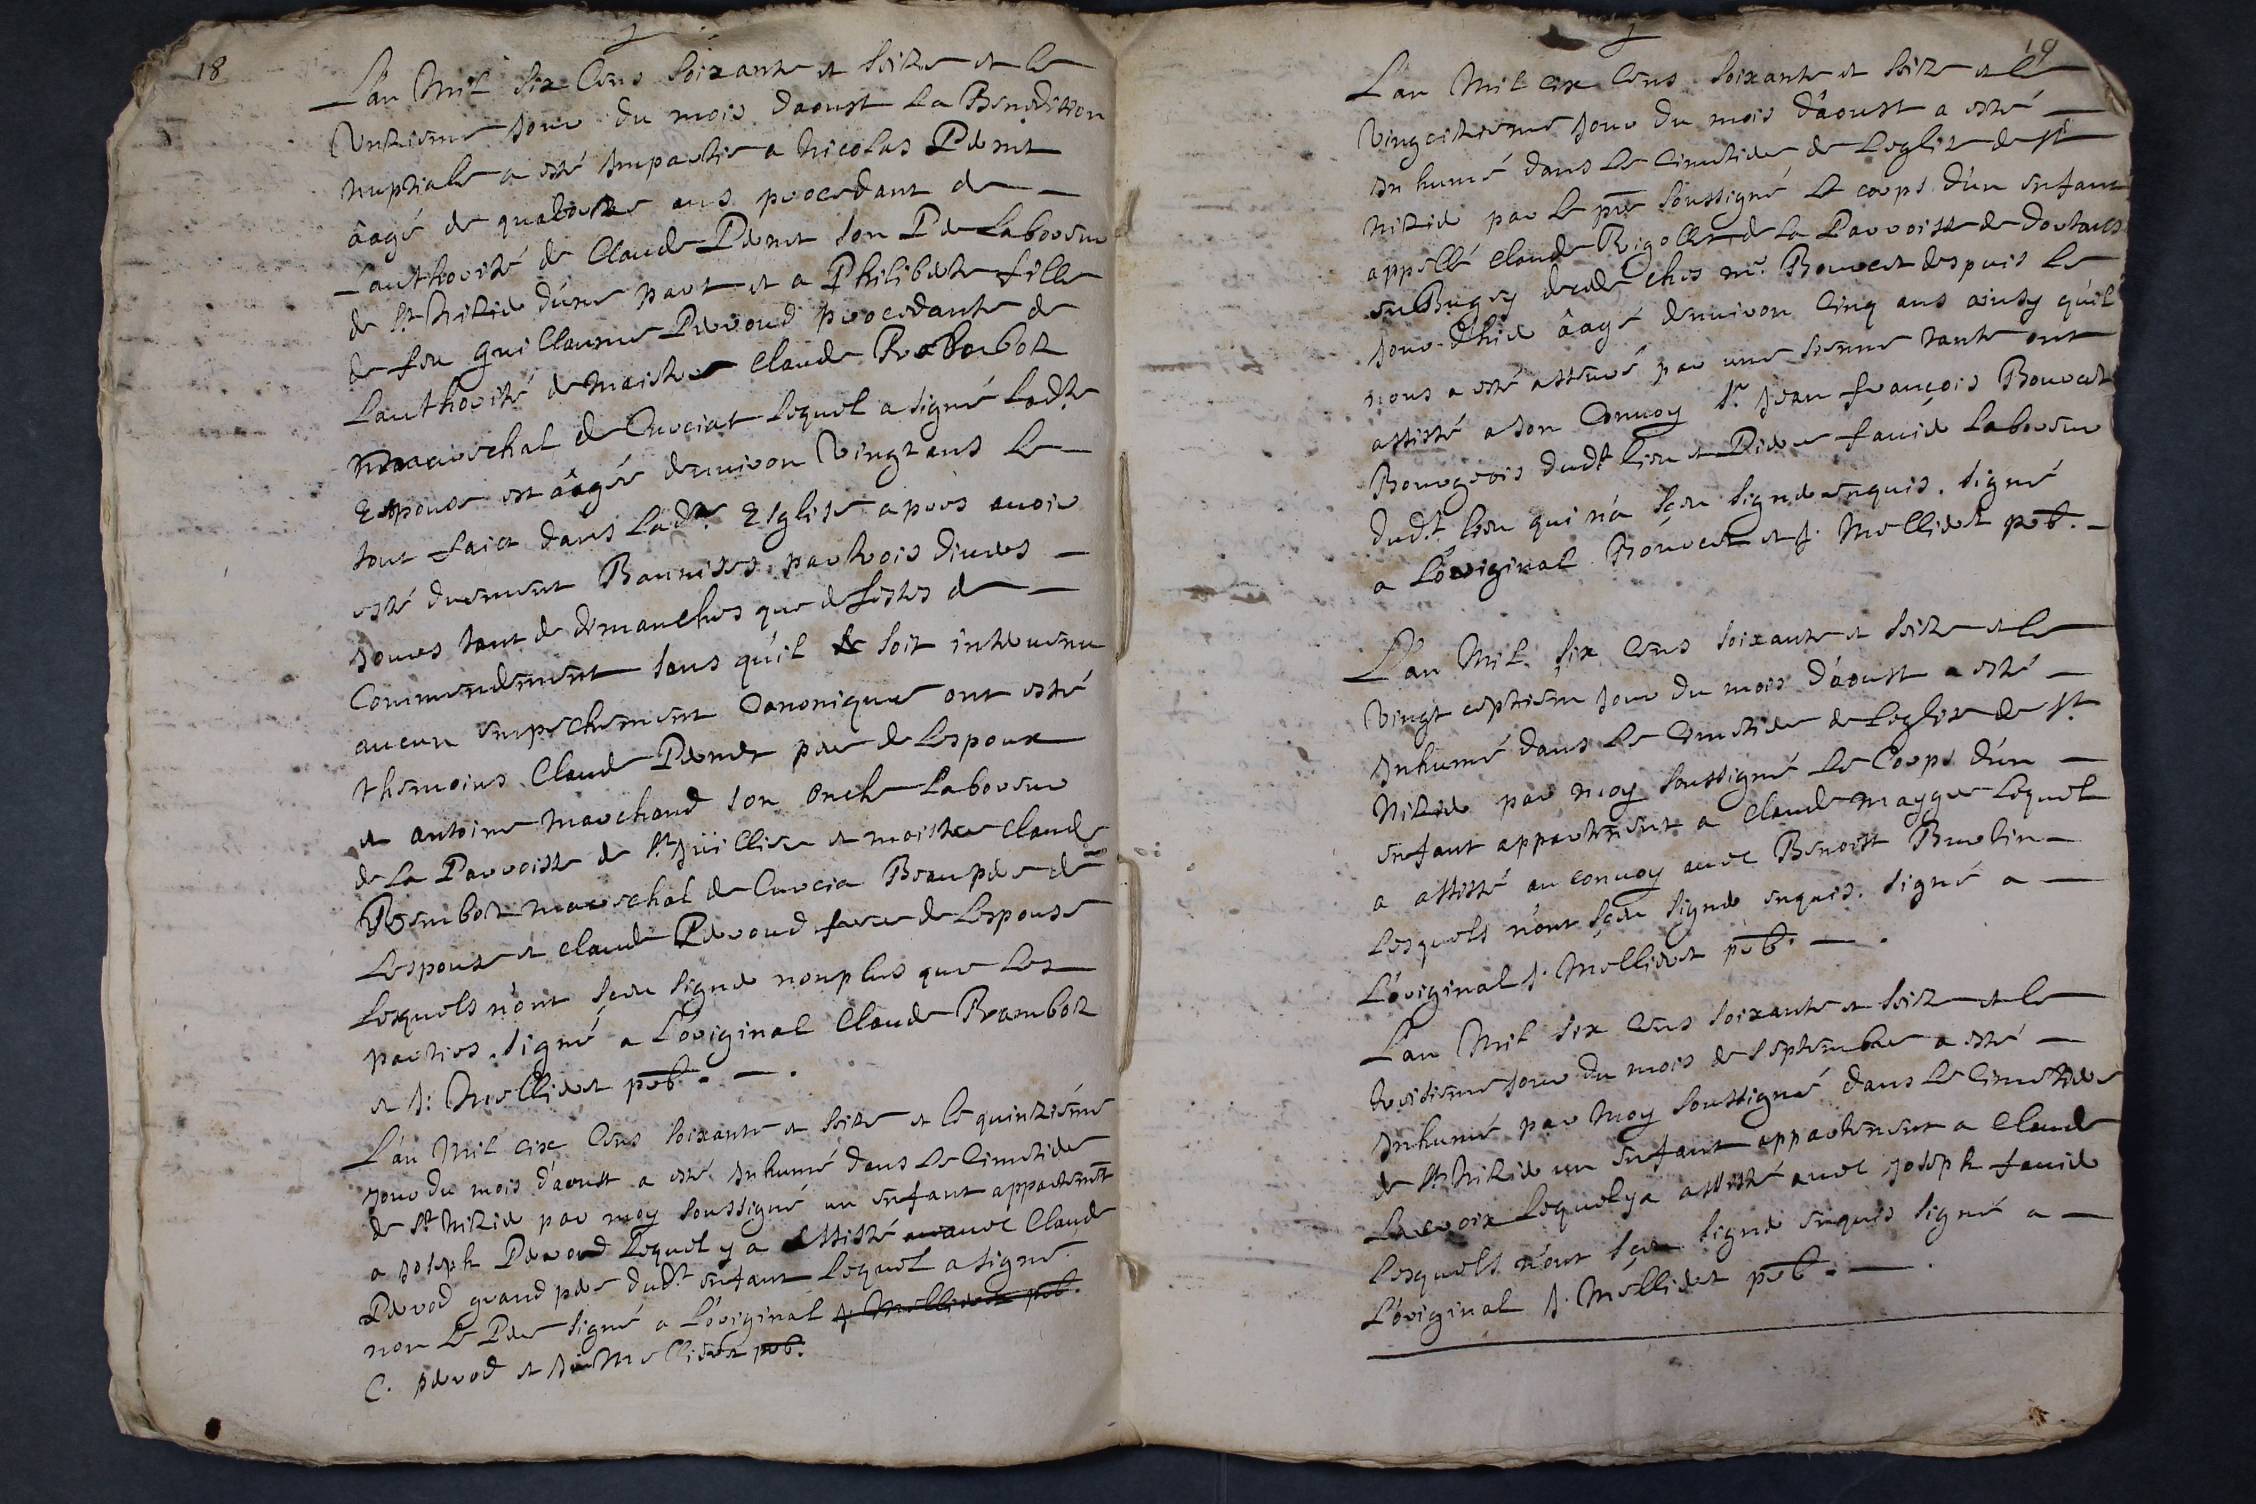 18
Lan Mil six Cens soixante et seize et le
Unziesme Jour du mois daoust La Benediction
Nuptiale a esté Impartie a Nicolas Pernet
âagé de quatorze ans procedant de
Lauthorité de Claude Pernet son Pere Laboureur
de St Nizier d'une part et a Philiberte fille
de feu Guillaume Peroud procedante de
Lauthorité de Maistre Claude
Mareschal de Curciat Lequel a signé Ladte
Espouse est âagée denuiron Vingt ans Le
tout faict dans Ladte Esglise apres auoir
esté duement Bannises par trois diuers
Jours tant de dimanches que de festes de
Commendement sans qu'il soit interuenu
aucun empechement Canonique ont esté
thesmoins Claude Pernet pere de Lespoux
et antoine Marchand son oncle Laboureur
de La Parroisse de St Juillien et maistre Claude
Rembot Mareschal de Curcia Beaupere de
Lespouse et Claude Peroud frere de Lespouse
Lesquels n'ont sçeu signer nonplus que Les
parties. signé a L'original Claude Rambot
et J: Mellieret pbt.
L'an Mil cix Cens soixante et seize et le quinziesme
Jour du mois d'aoust a esté Inhumé dans Le Cimetiere
de St Nizier par moy soussigné un enfant appartenent
a Joseph Peroud Lequel y a assisté auec Claude
Perod grand pere dudt enfant Lequel a signé
non Le Pere signé a L'original J Mellieret pbt.
C. perod et J: Mellieret pbt.
19
Lan Mil cix Cens soixante et seize et le
Vingcitiesme Jour du mois d'aoust a esté
Inhumé dans Le Cimetiere de Leglise de St
Nizier par Le pre soussigné Le corps d'un enfant
appellé Claude Rigollet de La Parroisse de
en Bugey decedé ches mr. Bouuet despuis Le
Jour d'hier âagé denuiron Cinq ans ainsy qu'il
nous a esté asseuré par une sienne tante ont
assisté a son Conuoy Sr. Jean françois Bouuet
Bourgeois dudt lieu et Pierre fauier Laboureur
dudt. lieu qui n'a sçeu signer enquis. signé
a L'original Bouuet et J. Mellieret pbt.
L'an Mil six Cens soixante et seize et le
Vingt ceptiesm Jour du mois d'aoust a esté
Inhumé dans Le Cimetiere de Leglise de St
Nizier par moy soussigné Le Corps d'un
enfant appartenent a Claude Maygre Lequel
a assisté au conuoy auec Benoist Burtin
Lesquels n'ont sçeu signer enquis. signé a
L'original J. Mellieret pbt.
Lan Mil six Cens soixante et seize et le
troisiesme Jour du mois de Septembre a esté
Inhumé par moy soussigné dans Le Cimetiere
de St Nizier un enfant appartenent a Claude
Lacroix Lequel y a assisté auec Joseph fauier
Lesquels n'ont sçeu signer enquis signé a
L'original J. Mellieret pbt.